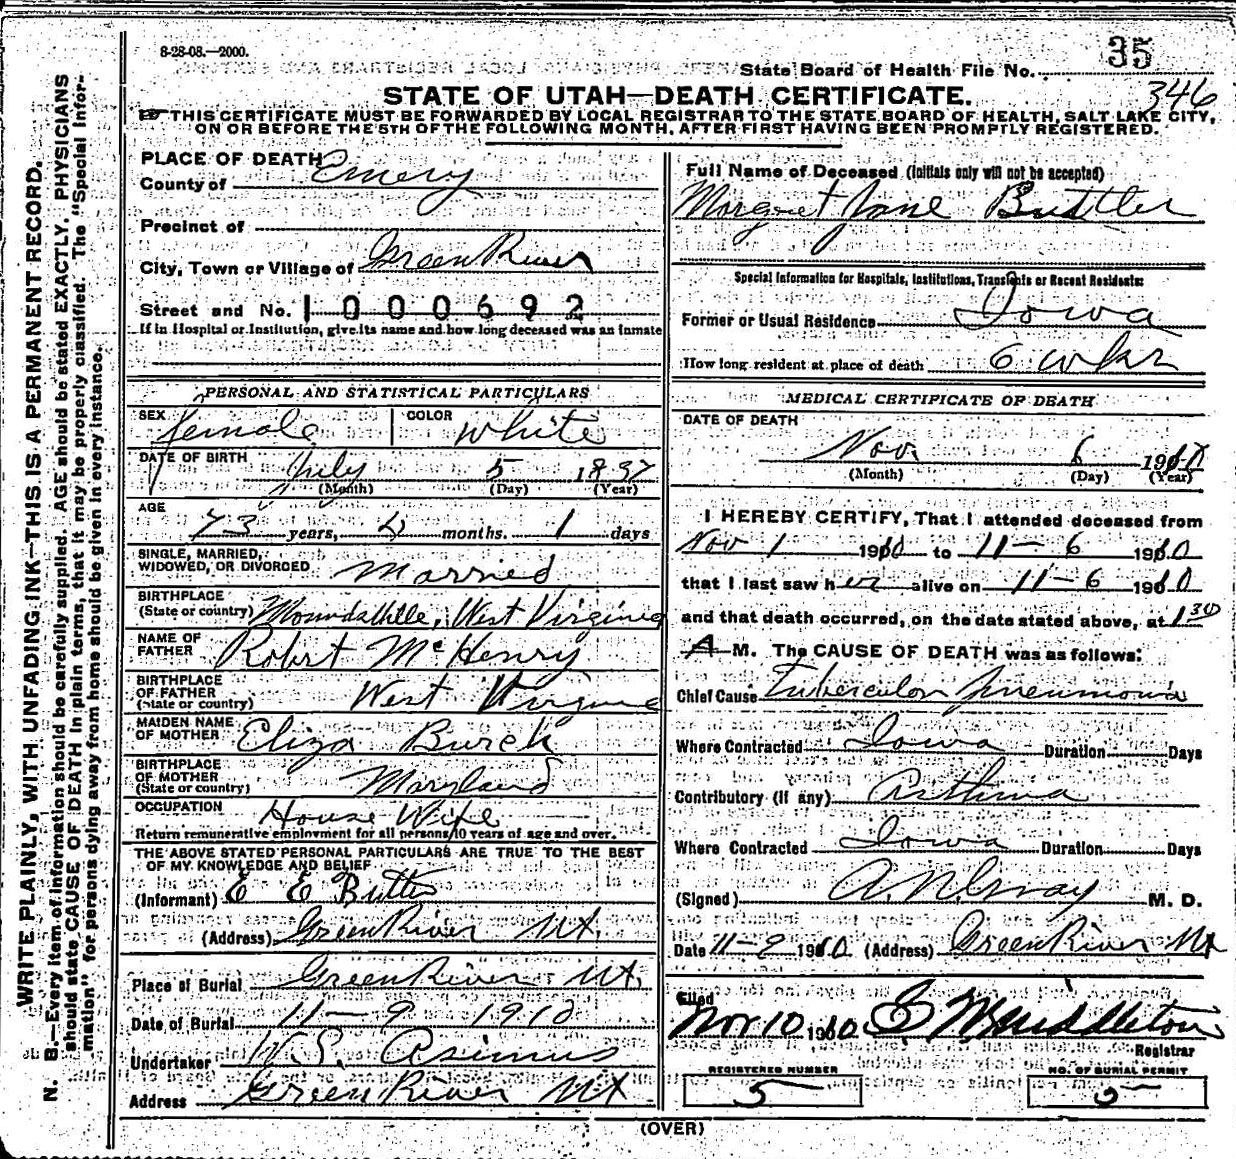 8-28-08.—2000.
State Board of Health File No. 35
346
STATE OF UTAH—DEATH CERTIFICATE.
THIS CERTIFICATE MUST BE FORWARDED BY LOCAL REGISTRAR TO THE STATE BOARD OF HEALTH, SALT LAKE CITY,
ON OR BEFORE THE 5TH OF THE FOLLOWING MONTH, AFTER FIRST HAVING BEEN PROMPTLY REGISTERED.
WRITE PLAINLY, WITH UNFADING INK—THIS IS A PERMANENT RECORD.
N. B.—Every item of information should be carefully supplied. AGE should be stated EXACTLY. PHYSICIANS
should state CAUSE OF DEATH in plain terms, that it may be properly classified. The "Special Infor-
mation" for persons dying away from home should be given in every instance.
PLACE OF DEATH
County of Emery
Precinct of
City, Town or Village of Green River
Street and No. 1000692
If in Hospital or Institution, give its name and how long deceased was an inmate
PERSONAL AND STATISTICAL PARTICULARS
SEX female COLOR white
DATE OF BIRTH July 5 1837
(Month) (Day) (Year)
AGE
73 years, 4 months. 1 days
SINGLE, MARRIED,
WIDOWED, OR DIVORCED Married
BIRTHPLACE
(State or country) Moundsville, West Virginia
NAME OF
FATHER Robert McHenry
BIRTHPLACE
OF FATHER
(State or country) West Virginia
MAIDEN NAME
OF MOTHER Eliza Burch
BIRTHPLACE
OF MOTHER
(State or country) Maryland
OCCUPATION House Wife
Return remunerative employment for all persons 10 years of age and over.
THE ABOVE STATED PERSONAL PARTICULARS ARE TRUE TO THE BEST
OF MY KNOWLEDGE AND BELIEF
(Informant) E E Butler
(Address) Green River Ut.
Place of Burial Green River Ut.
Date of Burial 11-9 1910
Undertaker W.S. Asimus
Address Green River Ut
Full Name of Deceased (Initials only will not be accepted)
Margret Jane Buttler
Special Information for Hospitals, Institutions, Transients or Recent Residents:
Former or Usual Residence Iowa
How long resident at place of death 6 wks
MEDICAL CERTIFICATE OF DEATH
DATE OF DEATH
Nov. 6 1910
(Month) (Day) (Year)
I HEREBY CERTIFY, That I attended deceased from
Nov 1 1910 to 11-6 1910
that I last saw her alive on 11-6 1910
and that death occurred, on the date stated above, at 1 30
A M. The CAUSE OF DEATH was as follows:
Chief Cause Tuberculon pneumonia
Where Contracted Iowa Duration Days
Contributory (if any) Asthma
Where Contracted Iowa Duration Days
(Signed) M. D.
Date 11-9 1910 (Address) Green River Ut
Filed
Nov 10 1910 Middleton
Registrar
REGISTERED NUMBER
5
NO. OF BURIAL PERMIT
5
(OVER)